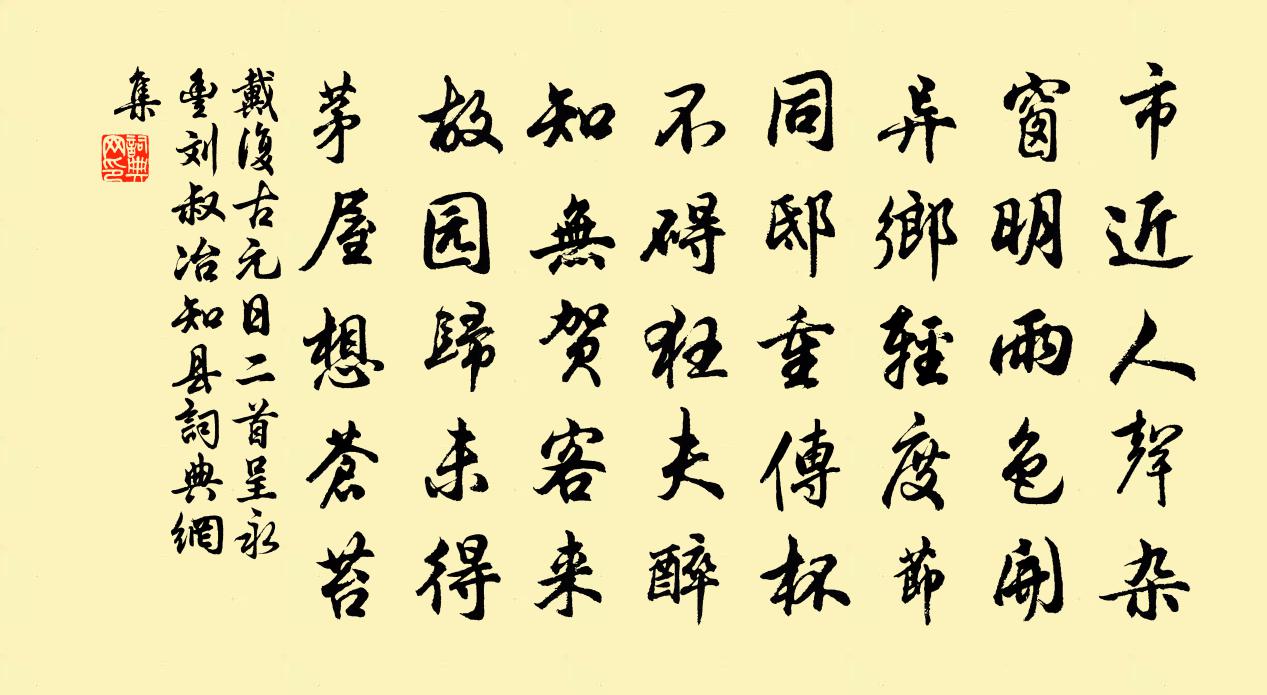 市近人聲杂
窗明雨色開
异鄉輕度節
同邸重傳杯
不碍狂夫醉
知無贺客来
故园歸未得
茅屋想蒼苔
戴復古元日二首呈永
豊刘叔冶知县詞典網
集
詞典
网印